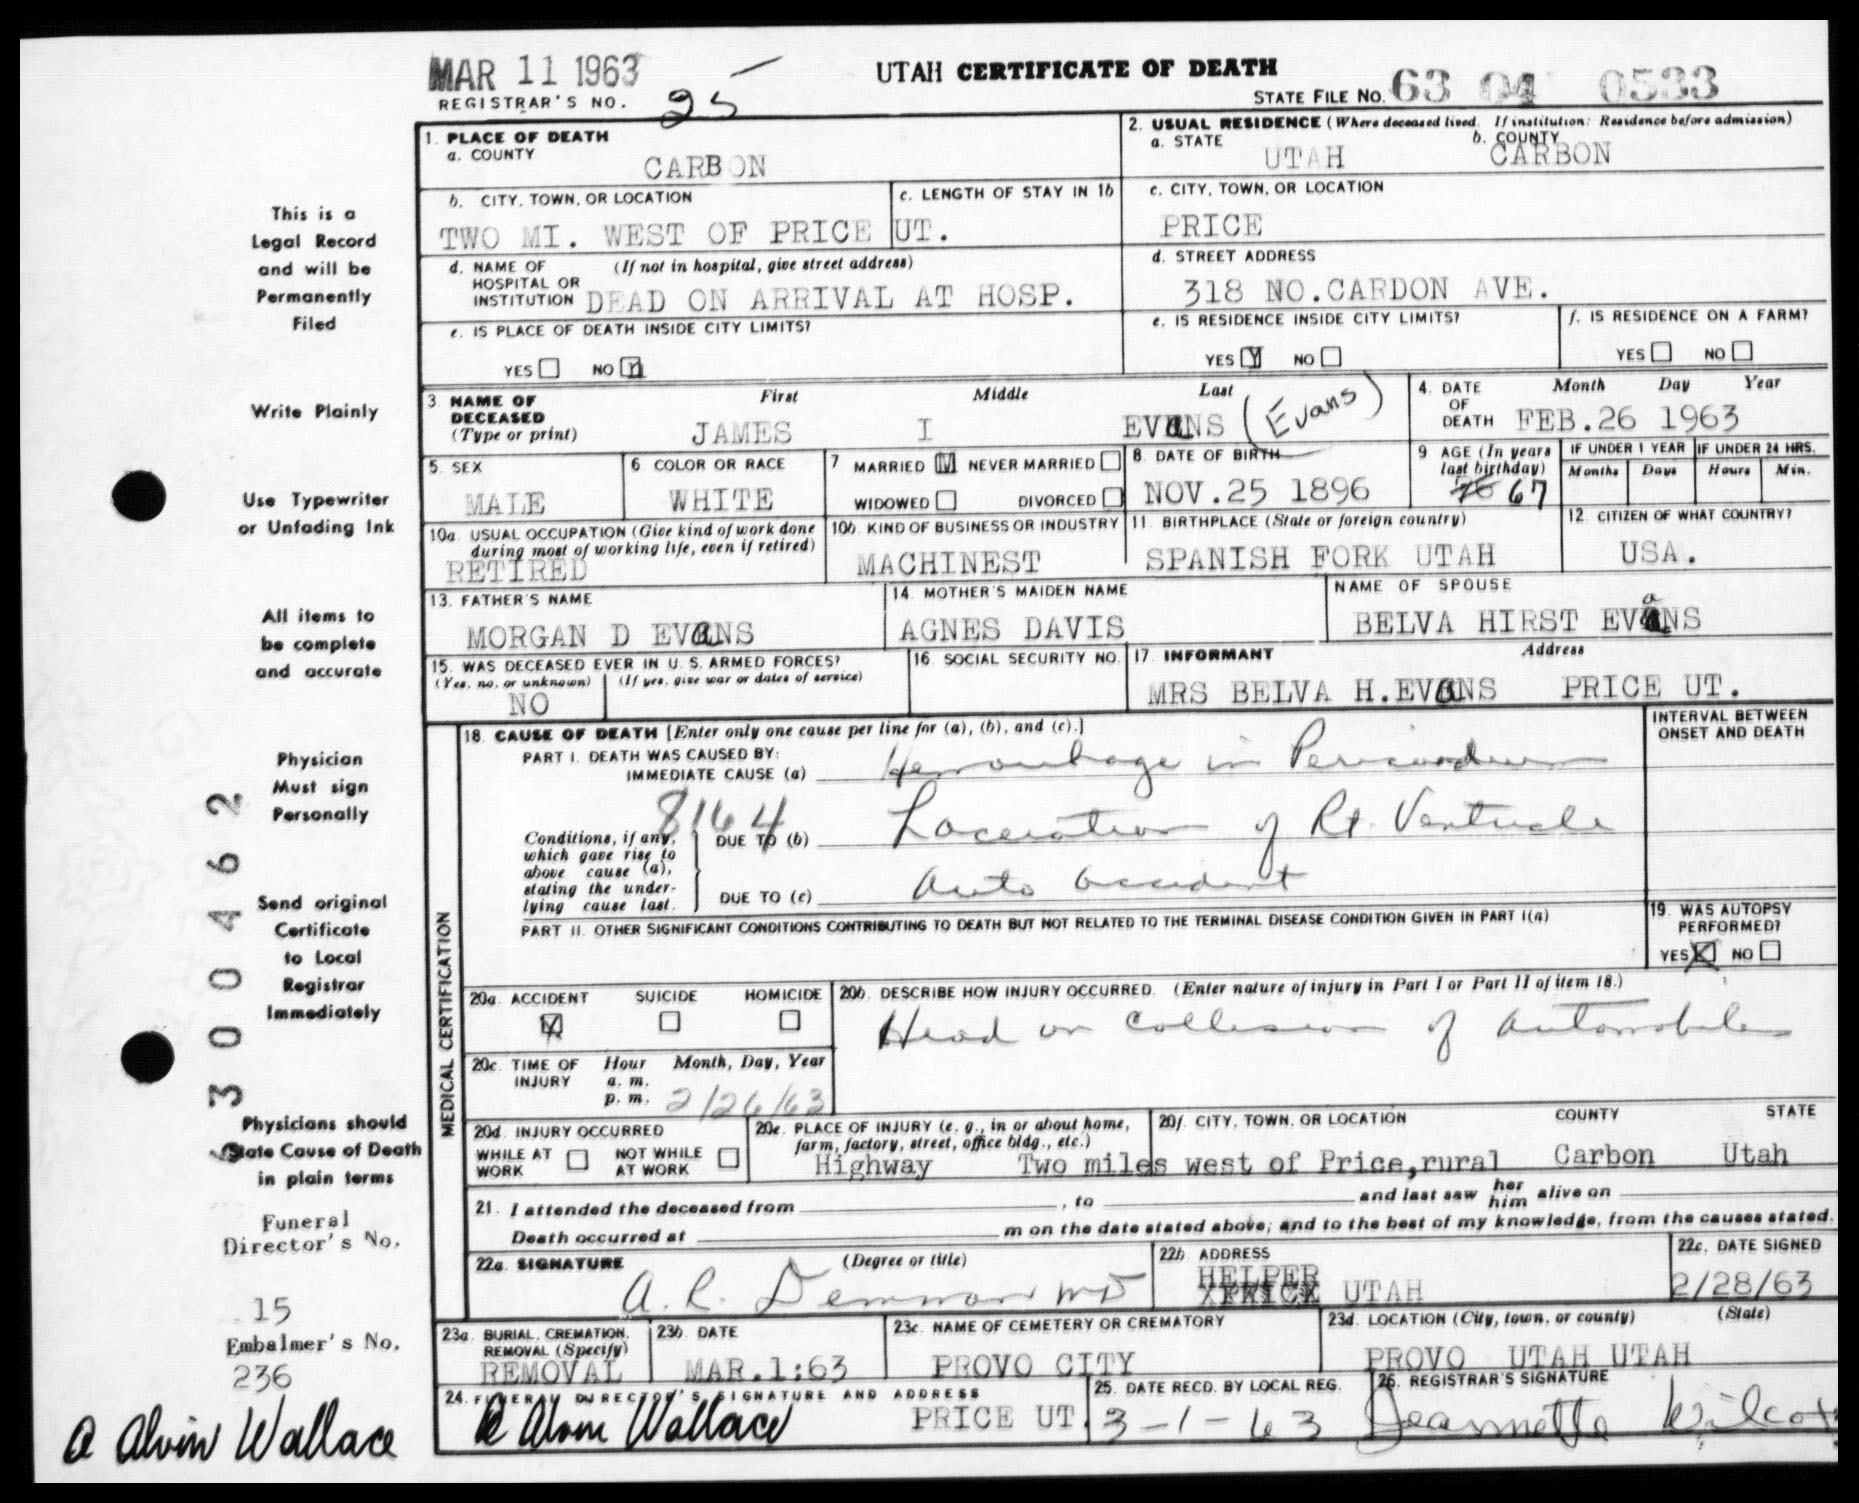 MAR 11 1963
UTAH CERTIFICATE OF DEATH
REGISTRAR'S NO. 25
STATE FILE NO. 63 04 0533
1. PLACE OF DEATH
a. COUNTY
CARBON
2. USUAL RESIDENCE (Where deceased lived. If institution: Residence before admission)
a. STATE
UTAH
b. COUNTY
CARBON
b. CITY, TOWN, OR LOCATION
TWO MI. WEST OF PRICE UT.
c. LENGTH OF STAY IN 1b
c. CITY, TOWN, OR LOCATION
PRICE
d. NAME OF HOSPITAL OR INSTITUTION
(If not in hospital, give street address)
DEAD ON ARRIVAL AT HOSP.
d. STREET ADDRESS
318 NO.CARDON AVE.
e. IS PLACE OF DEATH INSIDE CITY LIMITS?
YES NO n
e. IS RESIDENCE INSIDE CITY LIMITS?
YES Y NO
f. IS RESIDENCE ON A FARM?
YES NO
3 NAME OF DECEASED
(Type or print)
First Middle Last
JAMES I EVANS (Evans)
4. DATE OF DEATH
Month Day Year
FEB.26 1963
5. SEX
MALE
6 COLOR OR RACE
WHITE
7 MARRIED M NEVER MARRIED
WIDOWED DIVORCED
8. DATE OF BIRTH
NOV.25 1896
9 AGE (In years last birthday)
67
IF UNDER 1 YEAR
Months Days
IF UNDER 24 HRS.
Hours Min.
10a. USUAL OCCUPATION (Give kind of work done during most of working life, even if retired)
RETIRED
10b. KIND OF BUSINESS OR INDUSTRY
MACHINEST
11. BIRTHPLACE (State or foreign country)
SPANISH FORK UTAH
12. CITIZEN OF WHAT COUNTRY?
USA.
13. FATHER'S NAME
MORGAN D EVANS
14. MOTHER'S MAIDEN NAME
AGNES DAVIS
NAME OF SPOUSE
BELVA HIRST EVANS
a
15. WAS DECEASED EVER IN U. S. ARMED FORCES?
(Yes, no, or unknown) (If yes, give war or dates of service)
NO
16. SOCIAL SECURITY NO.
17. INFORMANT Address
MRS BELVA H.EVANS PRICE UT.
MEDICAL CERTIFICATION
18. CAUSE OF DEATH [Enter only one cause per line for (a), (b), and (c).]
INTERVAL BETWEEN ONSET AND DEATH
PART I. DEATH WAS CAUSED BY:
IMMEDIATE CAUSE (a) Hemorrhage in Pericardium
8164
Conditions, if any, which gave rise to above cause (a), stating the underlying cause last.
DUE TO (b) Laceration of Rt. Ventricle
DUE TO (c) Auto accident
PART II. OTHER SIGNIFICANT CONDITIONS CONTRIBUTING TO DEATH BUT NOT RELATED TO THE TERMINAL DISEASE CONDITION GIVEN IN PART I(a)
19. WAS AUTOPSY PERFORMED?
YES X NO
20a. ACCIDENT SUICIDE HOMICIDE
X
20b. DESCRIBE HOW INJURY OCCURRED. (Enter nature of injury in Part I or Part II of item 18.)
Head on collision of automobiles
20c. TIME OF INJURY
Hour Month, Day, Year
a. m.
p. m. 2/26/63
20d. INJURY OCCURRED
WHILE AT WORK NOT WHILE AT WORK
20e. PLACE OF INJURY (e. g., in or about home, farm, factory, street, office bldg., etc.)
20f. CITY, TOWN, OR LOCATION COUNTY STATE
Highway Two miles west of Price,rural Carbon Utah
21. I attended the deceased from , to and last saw her him alive on
Death occurred at m on the date stated above; and to the best of my knowledge, from the causes stated.
22a. SIGNATURE (Degree or title)
A. R. Demman MD
22b. ADDRESS
HELPER
XPRICX UTAH
22c. DATE SIGNED
2/28/63
23a. BURIAL, CREMATION, REMOVAL (Specify)
REMOVAL
23b. DATE
MAR.1:63
23c. NAME OF CEMETERY OR CREMATORY
PROVO CITY
23d. LOCATION (City, town, or county) (State)
PROVO UTAH UTAH
24. FUNERAL DIRECTOR'S SIGNATURE AND ADDRESS
A Alvin Wallace PRICE UT.
25. DATE RECD. BY LOCAL REG.
3-1-63
26. REGISTRAR'S SIGNATURE
Jeannette Wilcox
This is a
Legal Record
and will be
Permanently
Filed
Write Plainly
Use Typewriter
or Unfading Ink
All items to
be complete
and accurate
Physician
Must sign
Personally
Send original
Certificate
to Local
Registrar
Immediately
Physicians should
State Cause of Death
in plain terms
300462
Funeral
Director's No.
15
Embalmer's No.
236
A Alvin Wallace